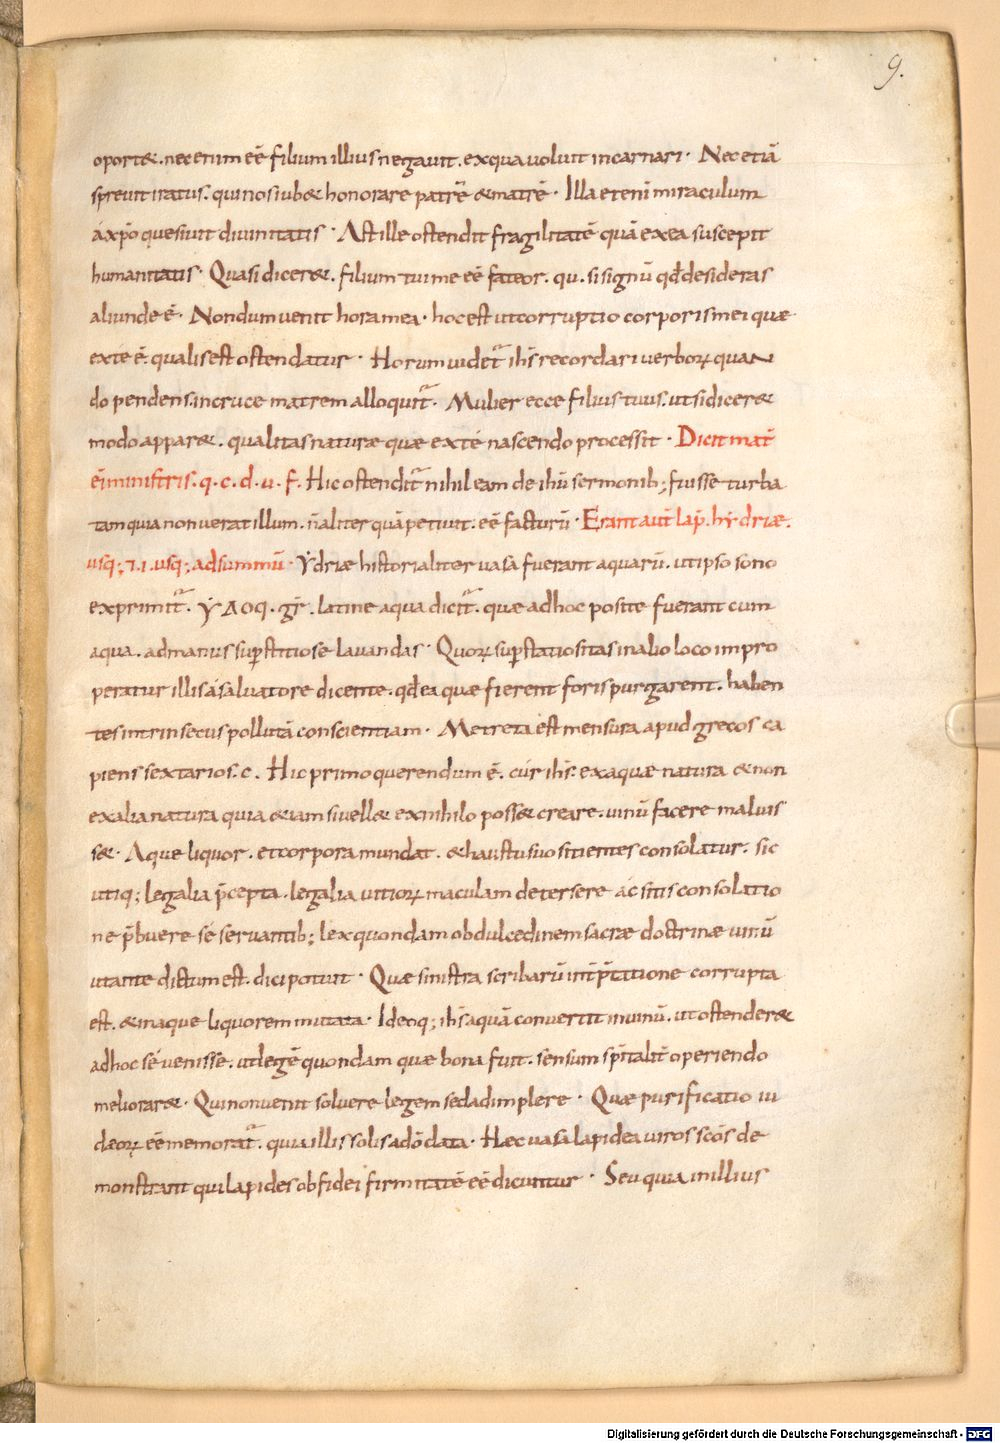 9.
oport&. nec enim eē filium illius negauit. ex qua uoluit incarnari· Nec etiā
spreuit iratus. qui nos iub& honorare patrē & matrē· Illa etenī miraculum
á xpō quesiuit diuinitatis· Ast ille ostendit fragilitatē quā ex ea suscepit
humanitatis· Quasi dicer&. filium tui me eē fateor. qu. si signū qđ desideras
aliunde ē· Nondum uenit hora mea· hoc est ut corruptio corporis mei quę
ex te ē. qualis est ostendatur· Horum uidet ihs̄ recordari uerboꝝ quan
do pendens in cruce matrem alloquit· Mulier ecce filius tuus. ut si dicer&
modo appar&. qualitas naturæ quæ ex té nascendo processit· Dicit mat̄
ei ministris. q. c. d. u. f. Hic ostendit nihil eam de ihū sermonib; fuisse turba
tam quia nouerat illum. n̄ aliter quā petiuit. eē facturū· Erant aut̄ lap̄. hydriæ.
usq; 7. i. usq; ad summū· Ydriæ historialiter uasa fuerant aquarū. ut ipso sono
exprimit. ΥΔΟΡ. gr̄. latine aqua dicit. quæ ad hoc posite fuerant cum
aqua. ad manus suꝑstitiose lauandas· Quoꝝ suꝑstatiositas in alio loco impro
peratur illis á saluatore dicente. qđ ea quæ fierent foris purgarent. haben
tes intrinsecus pollutā conscientiam· Metreta est mensura apud grecos ca
piens sextarios. c. Hic primo querendum ē. cúr ihs̄. ex aquæ natura & non
ex alia natura quia &iam si uell& ex nihilo poss& creare. uinū facere maluis
s&· Aque liquor. et corpora mundat. & haustu suo sitientes consolatur. sic
utiq; legalia p̄cepta. legalia uitioꝝ maculam detersere ác sitis consolatio
ne p̄buere se seruantib; lex quondam ob dulcedinem sacræ doctrinæ uinū
ut ante dictum est. dici potuit· Quæ sinistra scribarū int̄p̄tatione corrupta
est. & in aque liquorem mutata· Ideoq; ihs̄ aquā conuertit in uinū. ut ostender&
ad hoc sé uenisse. ut legē quondam quæ bona fuit. sensum sp̄italit̄ operiendo
meliorar&· Qui non uenit soluere legem sed adimplere· Quæ purificatio iu
deoꝝ eē memorat. quia illis solis ad ō data· Hæc uasa lapidea uiros scōs de
monstrant qui lapides ob fidei firmitatē eē dicuntur· Seu quia in illius
Digitalisierung gefördert durch die Deutsche Forschungsgemeinschaft - DFG